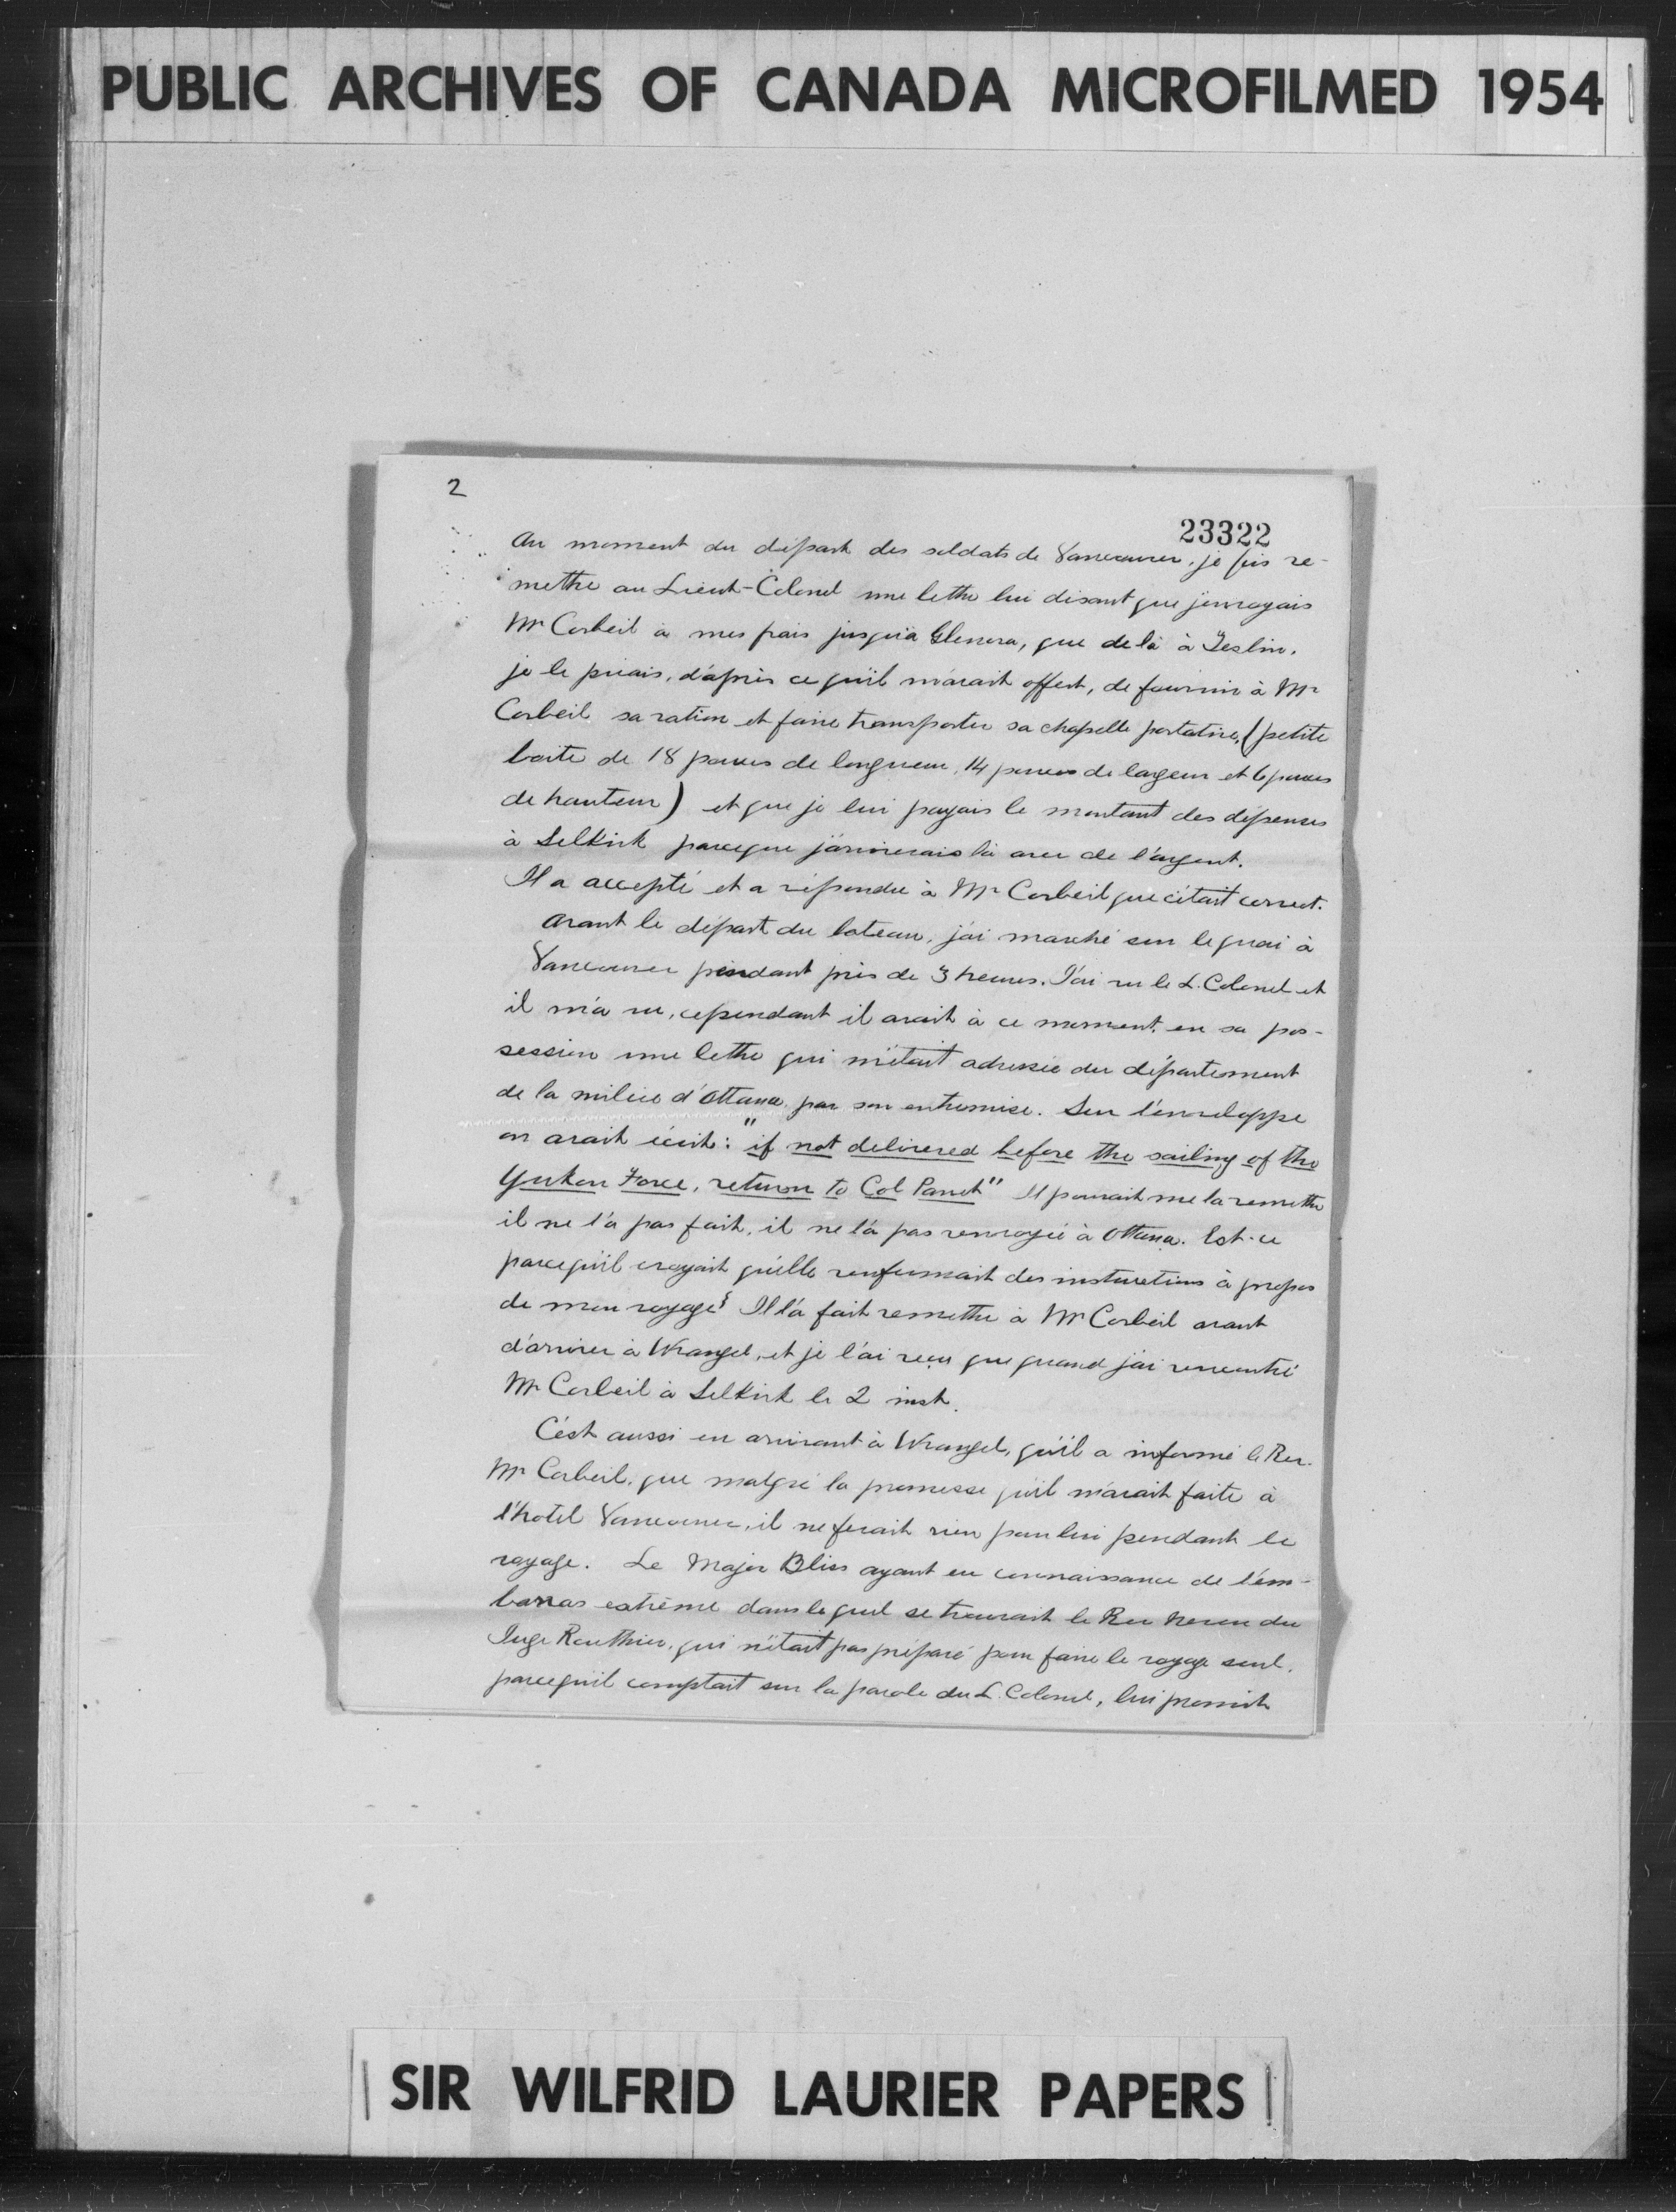 PUBLIC ARCHIVES OF CANADA MICROFILMED 1954
2
23322
Au moment du départ des soldats de Vancouver, je fis re-
mettre au Lieut-Colonel une lettre lui disant que j'envoyais
Mr Corbeil à mes frais jusqu'à Glenora, que de là à Teslin,
je le priais, d'après ce qu'il m'avait offert, de fournir à Mr
Corbeil sa ration et faire transporter sa chapelle portative, (petite
boite de 18 pouces de longueur, 14 pouces de largeur et 6 pouces
de hauteur) et que je lui payais le montant des dépenses
à Selkirk parceque j'arriverais là avec de l'argent.
Il a accepté et a répondu à Mr Corbeil que c'était correct.
Avant le départ du bateau, j'ai marché sur le quai à
Vancouver pendant près de 3 heures. J'ai vu le L. Colonel et
il m'a vu, cependant il avait à ce moment en sa pos-
session une lettre qui m'était adressée du département
de la milice d'Ottawa par son entremise. Sur l'enveloppe
on avait écrit: "if not delivered before the sailing of the
Yukon Force, return to Col Panet" Il pouvait me la remettre
il ne l'a pas fait, il ne l'a pas renvoyée à Ottawa. Est-ce
parcequ'il croyait qu'elle renfermait des instructions à propos
de mon voyage? Il l'a fait remettre à Mr Corbeil avant
d'arriver à Wrangel, et je l'ai reçu que quand j'ai rencontré
Mr Corbeil à Selkirk le 2 inst.
C'est aussi en arrivant à Wrangel, qu'il a informé le Rev.
Mr Corbeil, que malgré la promesse qu'il m'avait faite à
l'hotel Vancouver, il ne ferait rien pour lui pendant le
voyage. Le Major Bliss ayant eu connaissance de l'em-
barras extrême dans lequel se trouvait le Rev neveu du
Juge Routhier, qui n'était pas préparé pour faire le voyage seul,
parcequ'il comptait sur la parole du L. Colonel, lui promit
SIR WILFRID LAURIER PAPERS